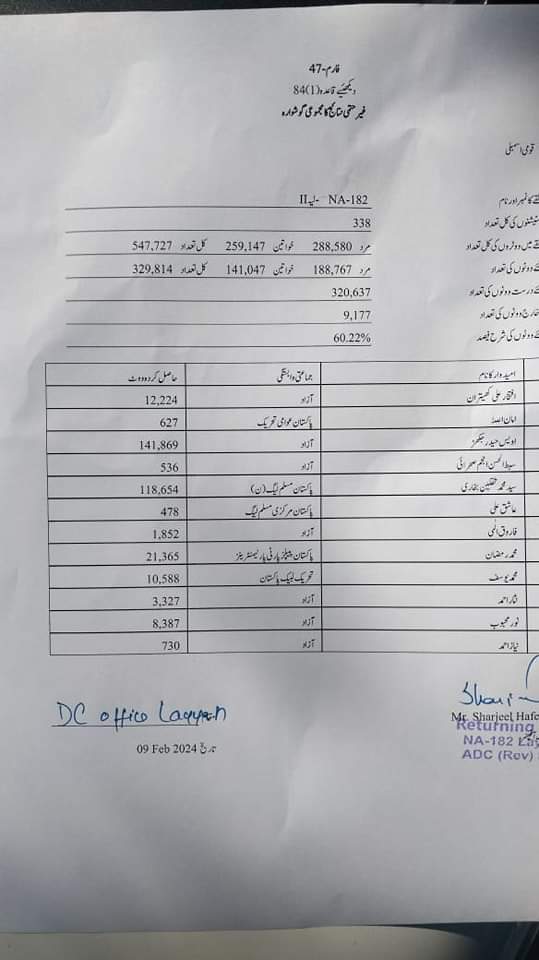 فارم-47
دیکھئیے قاعدہ (1)84
غیر حتمی نتائج کا مجموعی گوشوارہ
قومی اسمبلی
کا نمبر اور نام NA-182 -لیہ II
کی کل تعداد 338
میں ووٹروں کی کل تعداد مرد 288,580 خواتین 259,147 کل تعداد 547,727
ووٹوں کی تعداد مرد 188,767 خواتین 141,047 کل تعداد 329,814
درست ووٹوں کی تعداد 320,637
خارج ووٹوں کی تعداد 9,177
ووٹوں کی شرح فیصد 60.22%
امیدوار کا نام جماعتی وابستگی حاصل کردہ ووٹ
افتخار علی کھیتران آزاد 12,224
امان اللہ پاکستان عوامی تحریک 627
اویس حیدر جکھڑ آزاد 141,869
سبط الحسن انجم صحرائی آزاد 536
سید محمد ثقلین بخاری پاکستان مسلم لیگ (ن) 118,654
عاشق علی پاکستان مرکزی مسلم لیگ 478
فاروق الہی آزاد 1,852
محمد رمضان پاکستان پیپلز پارٹی پارلیمنٹیرینز 21,365
محمد یوسف تحریک لبیک پاکستان 10,588
نثار احمد آزاد 3,327
نور محبوب آزاد 8,387
نیاز احمد آزاد 730
DC office Layyah
Mr. Sharjeel Hafe
Returning
NA-182 Lay
ADC (Rev)
تاریخ 09 Feb 2024